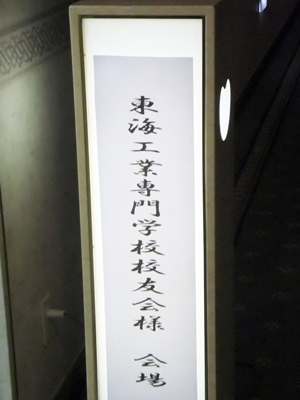 東海工業専門学校校友会様 会場